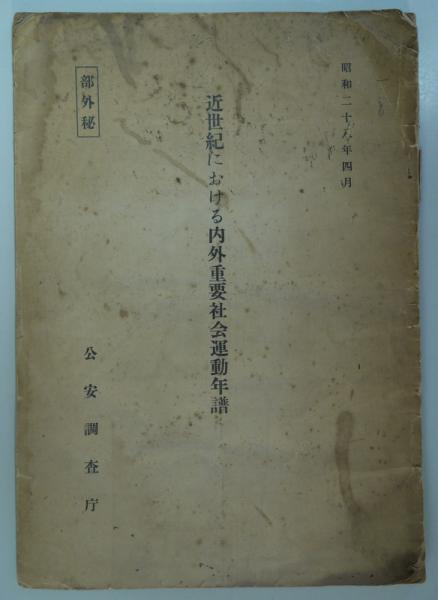 昭和二十八年四月
部外秘
近世紀における内外重要社会運動年譜
公安調査庁